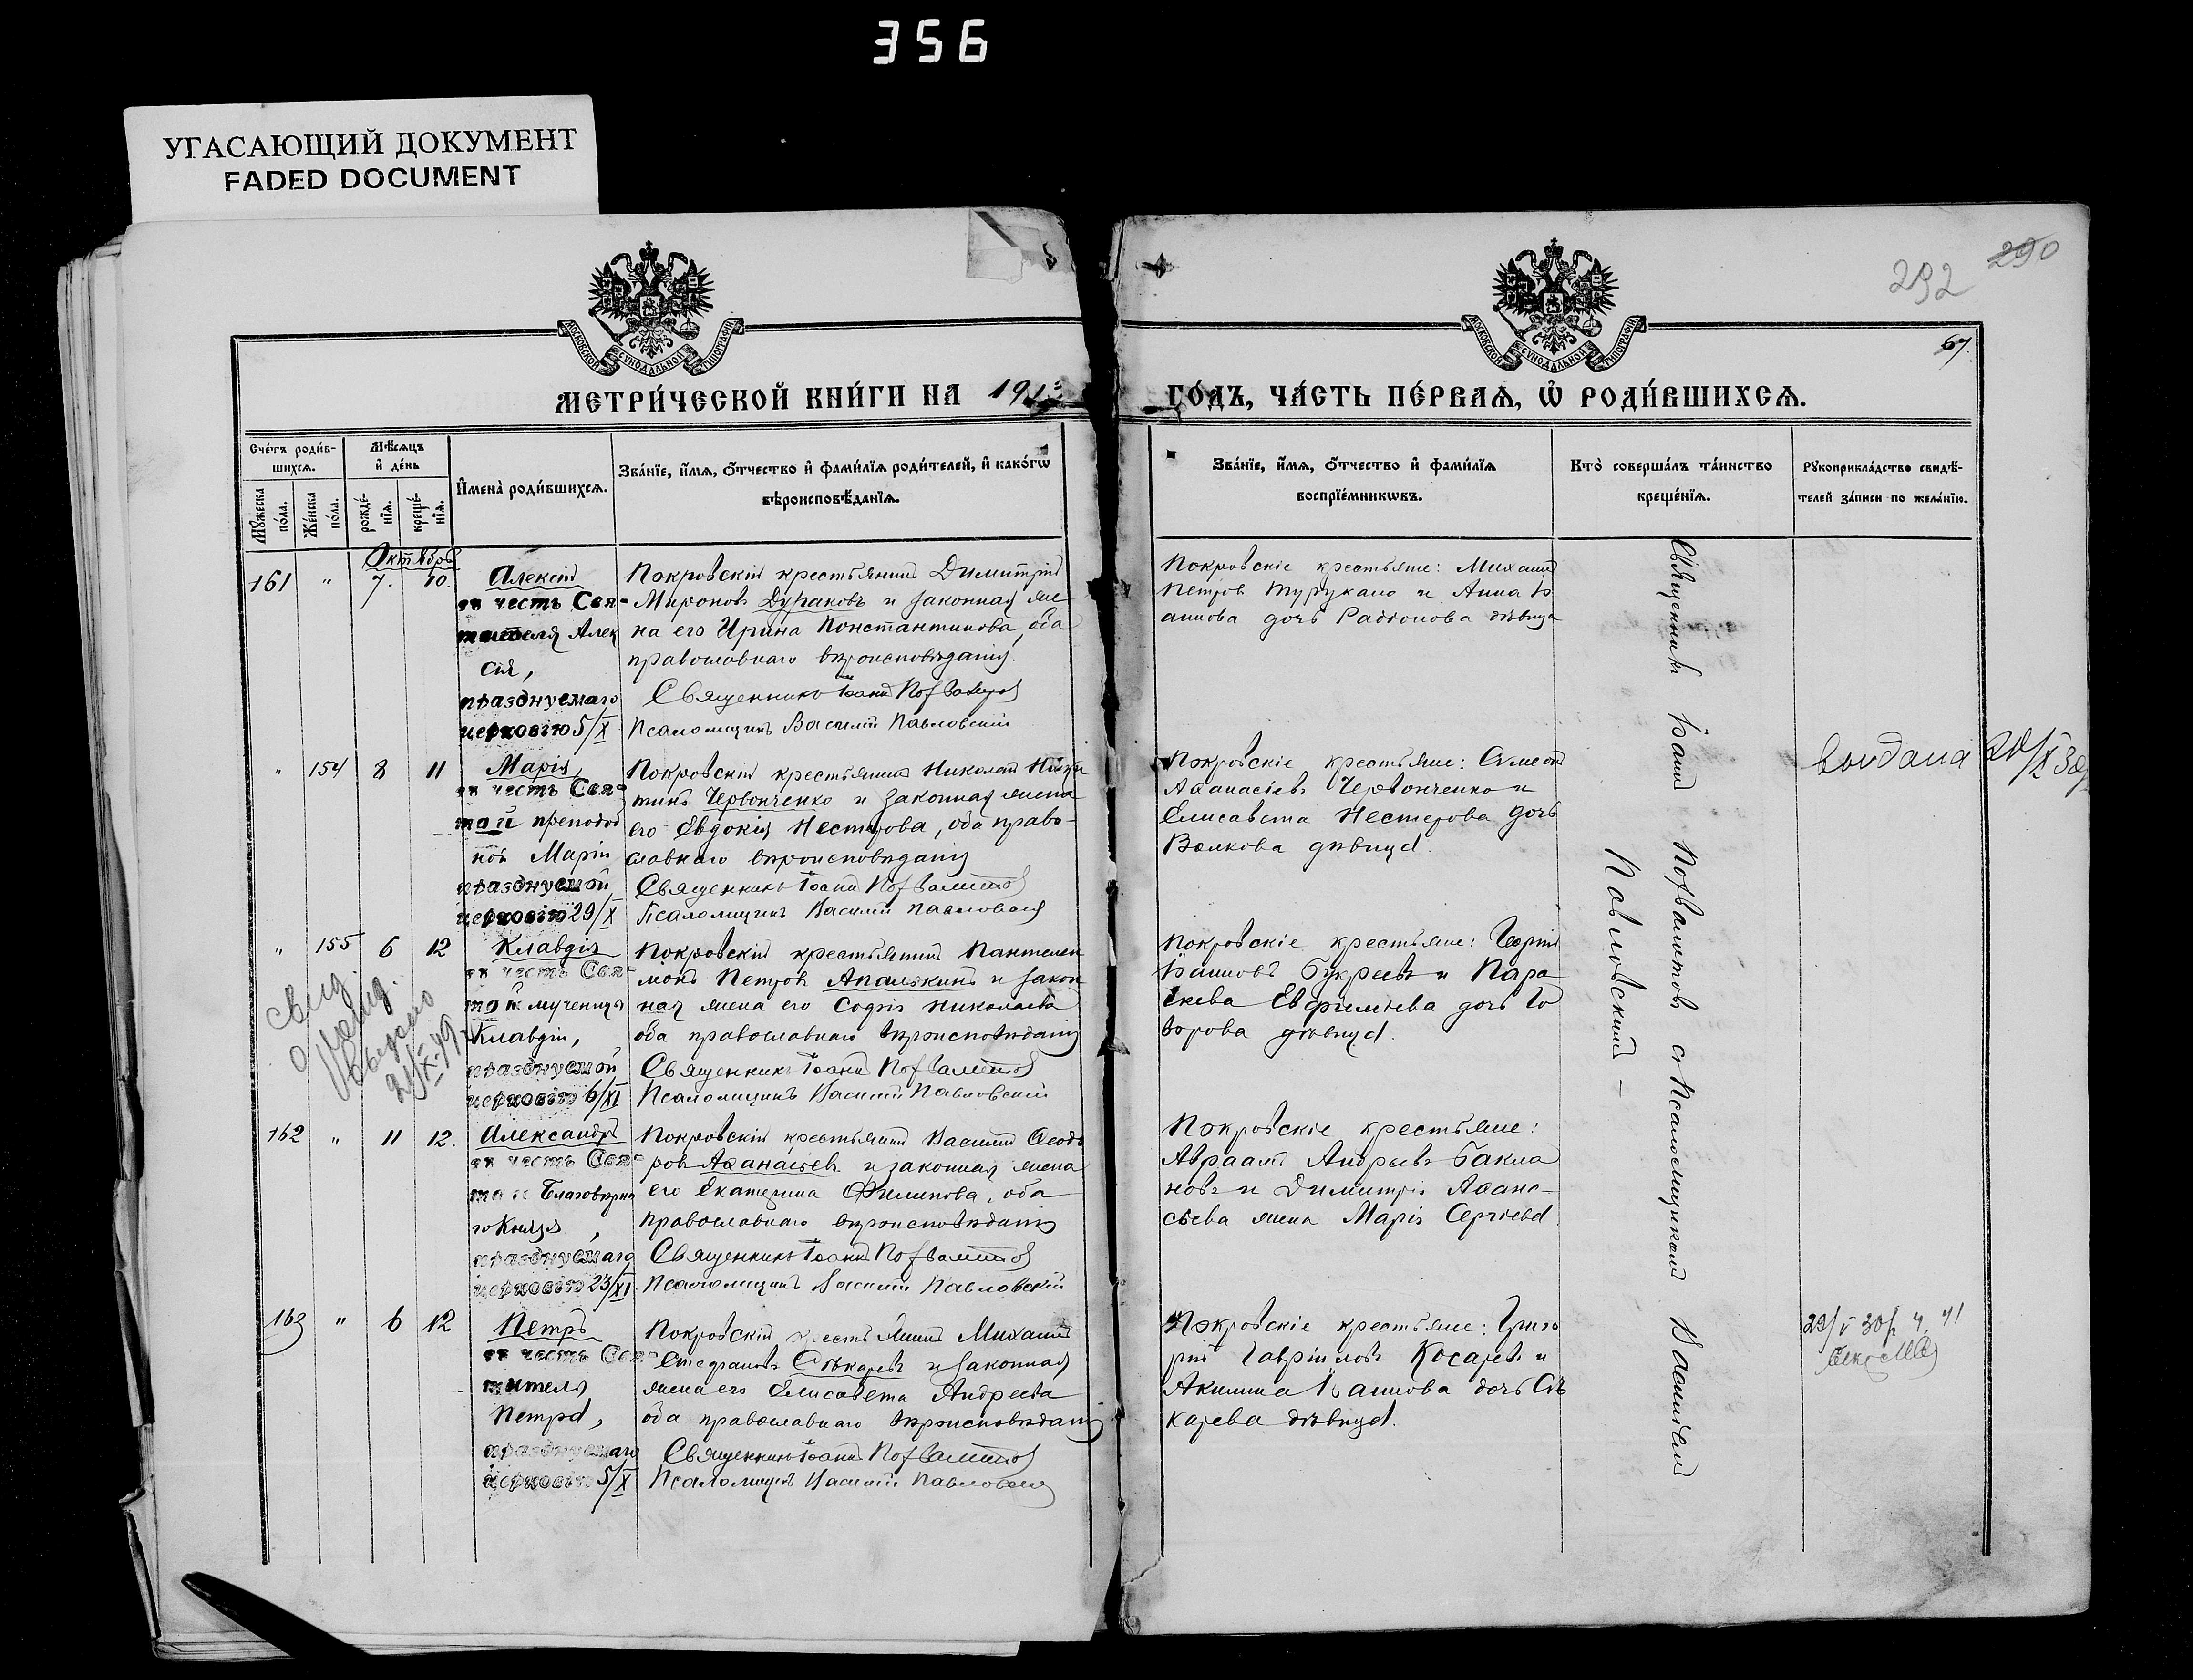 356
УГАСАЮЩИЙ ДОКУМЕНТ
FADED DOCUMENT
292
290
67
МОСКОВСКОЙ СѴНОДАЛЬНОЙ ТИПОГРАФІИ
МОСКОВСКОЙ СѴНОДАЛЬНОЙ ТИПОГРАФІИ
МЕТРИ́ЧЕСКОЙ КНИ́ГИ НА 191
ГО́ДЪ, ЧА́СТЬ ПЕ́РВАѦ, Ѡ҆ РОДИ́ВШИХСѦ.
Сче́тъ роди́в-
шихсѧ.
Мѣ́сѧцъ
и҆ де́нь
Мꙋ́жеска
по́ла.
Же́нска
по́ла.
рожде́-
нїѧ.
креще́-
нїѧ.
И҆мена̀ роди́вшихсѧ.
Зва́нїе, и҆́мѧ, ѻ҆́тчество и҆ фами́лїѧ роди́телей, и҆ како́гѡ
вѣроисповѣ́данїѧ.
Зва́нїе, и҆́мѧ, ѻ҆́тчество и҆ фами́лїѧ
воспрїе́мникѡвъ.
Кто̀ соверша́лъ та́инство
креще́нїѧ.
Рꙋкоприкла́дство свидѣ́-
телей за́писи по жела́нїю.
Октябрь
161 " 7. 10.
Алексій
въ честь Свя-
тителя Алек
сія,
празднуемаго
церковію 5/X
Покровскій крестьянинъ Димитрій
Мироновъ Дураковъ и законная же
на его Ирина Константинова, оба
православнаго вѣроисповѣданія.
Священникъ Іоаннъ
Псаломщикъ Василій Павловскій
Покровскіе крестьяне: Михаилъ
Петровъ Турукало и Анна Ів
анова дочь Радіонова дѣвица
" 154 8 11
Марія,
въ честь Свя-
той преподоб
ной Маріи
празднуемой
церковію 29/X
Покровскій крестьянинъ Николай Ники
тинъ Червонченко и законная жена
его Евдокія Нестерова, оба право-
славнаго вѣроисповѣданія
Священникъ Іоаннъ
Псаломщикъ Василій Павловскій
Покровскіе крестьяне: Сѵмеонъ
Аѳанасіевъ Червонченко и
Елисавета Нестерова дочь
Волкова дѣвица.
выдана 20/X 30
" 155 6 12
Клавдія
въ честь Свя-
той мученицы
Клавдіи,
празднуемой
церковію 6/XI
Покровскій крестьянинъ Пантелеи
монъ Петровъ Апалькинъ и закон
ная жена его Софія Николаева
оба православнаго вѣроисповѣданія
Священникъ Іоаннъ
Псаломщикъ Василій Павловскій
Покровскіе крестьяне: Георгій
Іванновъ Букреевъ и Пара
скева Евфиміева дочь Го
ворова дѣвица.
свид.
выдано
162 " 11 12.
Александръ
въ честь Свя-
таго Благовѣрна
го Князя,
празднуемаго
церковію 23/XI
Покровскій крестьянинъ Василій Ѳеодо
ровъ Аѳанасьевъ и законная жена
его Екатерина Филипова, оба
православнаго вѣроисповѣданія
Священникъ Іоаннъ
Псаломщикъ Василій Павловскій
Покровскіе крестьяне:
Авраамъ Андреевъ Бакла
новъ и Димитрія Аѳана-
сьева жена Марія Сергіева
163 " 6 12
Петръ
въ честь Свя-
тителя
Петра,
празднуемаго
церковію 5/X
Покровскій крестьянинъ Михаилъ
Стефановъ Сѣкаревъ и законная
жена его Елисавета Андреева
оба православнаго вѣроисповѣданія
Священникъ Іоаннъ
Псаломщикъ Василій Павловскій
Покровскіе крестьяне: Григо
рій Гавріиловъ Косаревъ и
Акилина Іваннова дочь Сѣ
карева дѣвица.
Священникъ Іоаннъ съ Псаломщикомъ Василіемъ
Павловскимъ –